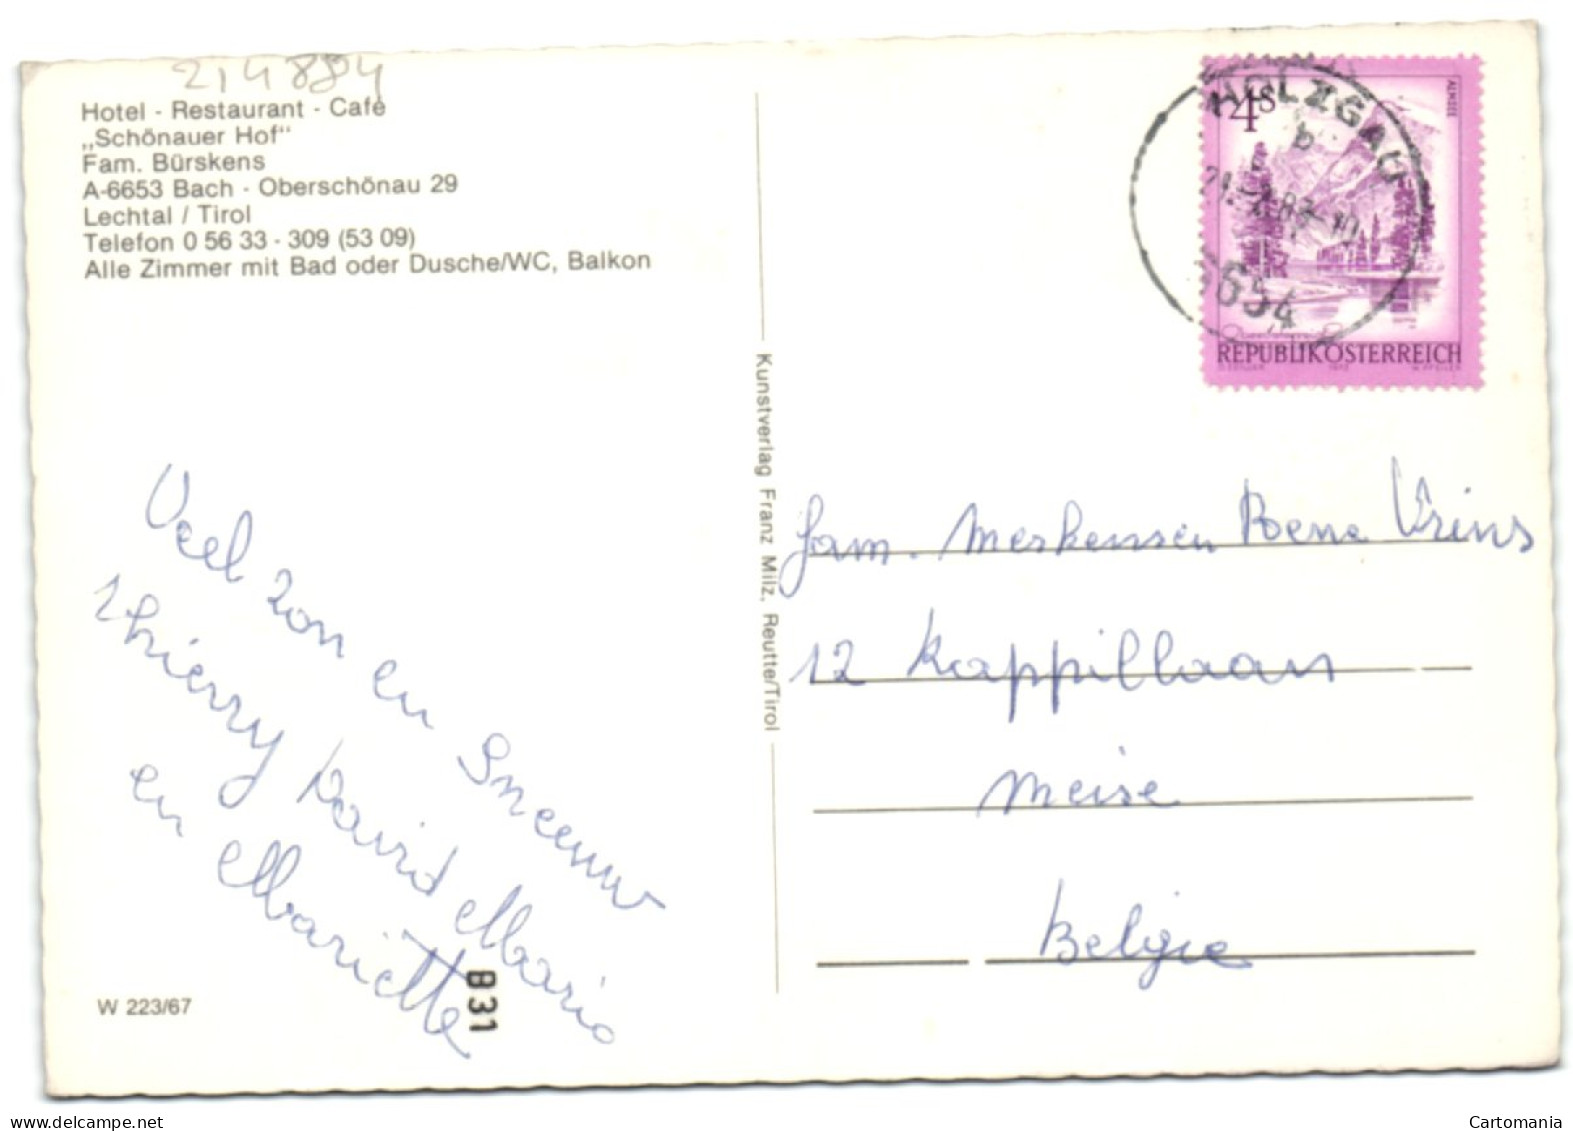 214884
Hotel - Restaurant - Café
„Schönauer Hof“
Fam. Bürskens
A-6653 Bach - Oberschönau 29
Lechtal / Tirol
Telefon 0 56 33 - 309 (53 09)
Alle Zimmer mit Bad oder Dusche/WC, Balkon
Veel zon en Sneeuw
Thierry David Mario
en Mariette
W 223/67
B31
Kunstverlag Franz Milz, Reutte/Tirol
HOLZGAU
b
6654
4S
ALMSEE
REPUBLIK ÖSTERREICH
Fam. Merkensen Rene Vrins
12 Kappillaan
Meise
Belgie
Cartomania